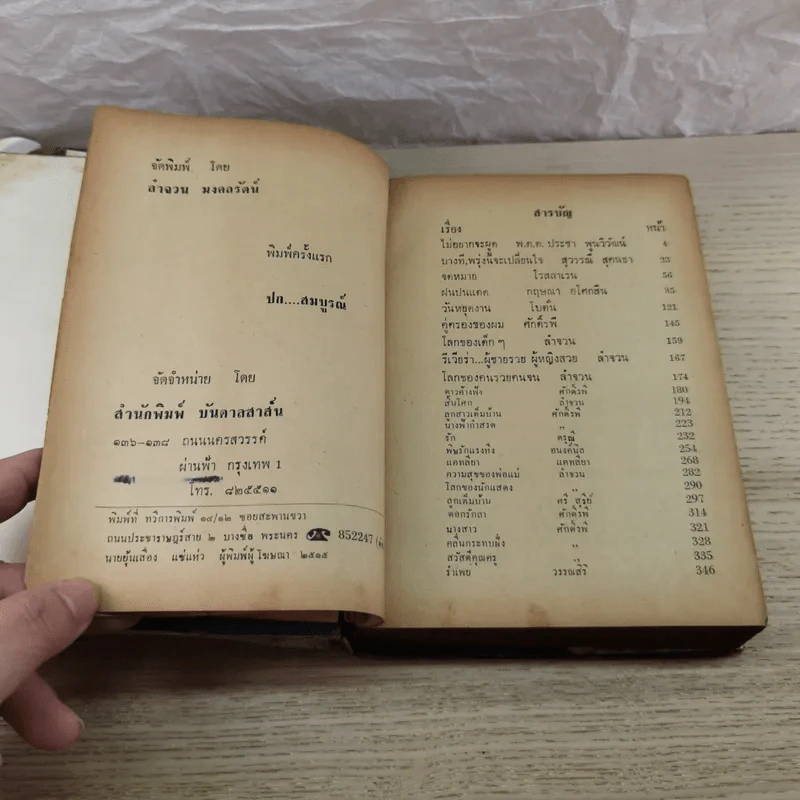 จัดพิมพ์ โดย
ลำจวน มงคลรัตน์
พิมพ์ครั้งแรก
ปก....สมบูรณ์
จัดจำหน่าย โดย
สำนักพิมพ์ บันดาลสาส์น
๑๓๖-๑๓๘ ถนนนครสวรรค์
ผ่านฟ้า กรุงเทพ 1
โทร. ๘๒๕๕๑๑
พิมพ์ที่ ทวีการพิมพ์ ๑๔/๑๒ ซอยสะพานขวา
ถนนประชาราษฎร์สาย ๒ บางซื่อ พระนคร 852247
นายยุ้นเสื่อง แซ่แห่ว ผู้พิมพ์ผู้โฆษณา ๒๕๑๕
สารบัญ
เรื่อง หน้า
ไม่อยากจะผูด พ.ต.ต. ประชา พูนวิวัฒน์ 4
บางที,พรุ่งนี้จะเปลี่ยนใจ สุวรรณี สุคนธา 23
จดหมาย โรสลาเรน 56
ฝนปนแดด กฤษณา อโศกสิน 85
วันหยุดงาน โบตั๋น 121
คู่ครองของผม ศักดิ์รพี 145
โลกของเด็ก ๆ ลำจวน 159
รีเวียร่า...ผู้ชายรวย ผู้หญิงสวย ลำจวน 167
โลกของคนรวยคนจน ลำจวน 174
ดาวค้างฟ้า ศักดิ์รพี 180
สันโศก ลำจวน 194
ลูกสาวเต็มบ้าน ศักดิ์รพี 212
นางฟ้ากำสรด ,, 223
รัก ดรุณี 232
พิษรักแรงหึง อนงค์นุช 254
แคทลียา แคทลียา 268
ความสุขของพ่อแม่ ลำจวน 282
โลกของนักแสดง ,, 290
ลูกเต็มบ้าน ศรี สุริย์ 297
ด๊อกรักลา ศักดิ์รพี 314
นางสาว ศักดิ์รพี 321
คลื่นกระทบฝั่ง ,, 328
สวัสดีคุณครู ,, 335
รำเพย วรรณสิริ 346